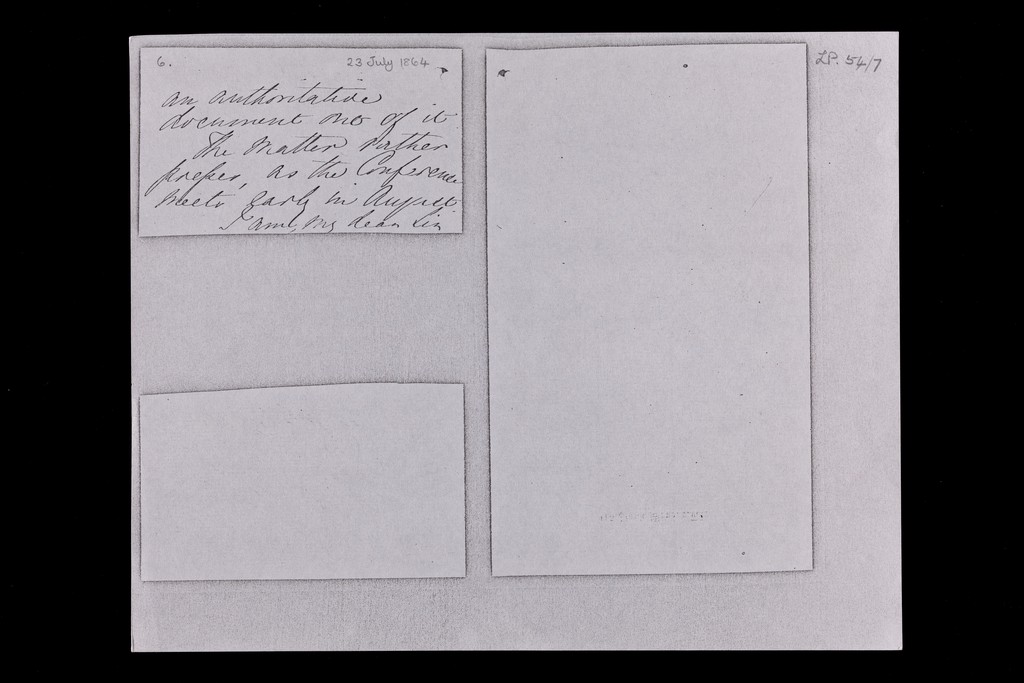 6.
23 July 1864
LP. 54/7
an authoritative
document out of it
The matter rather
presses, as the Conference
meets early in August
I am, my dear Sir